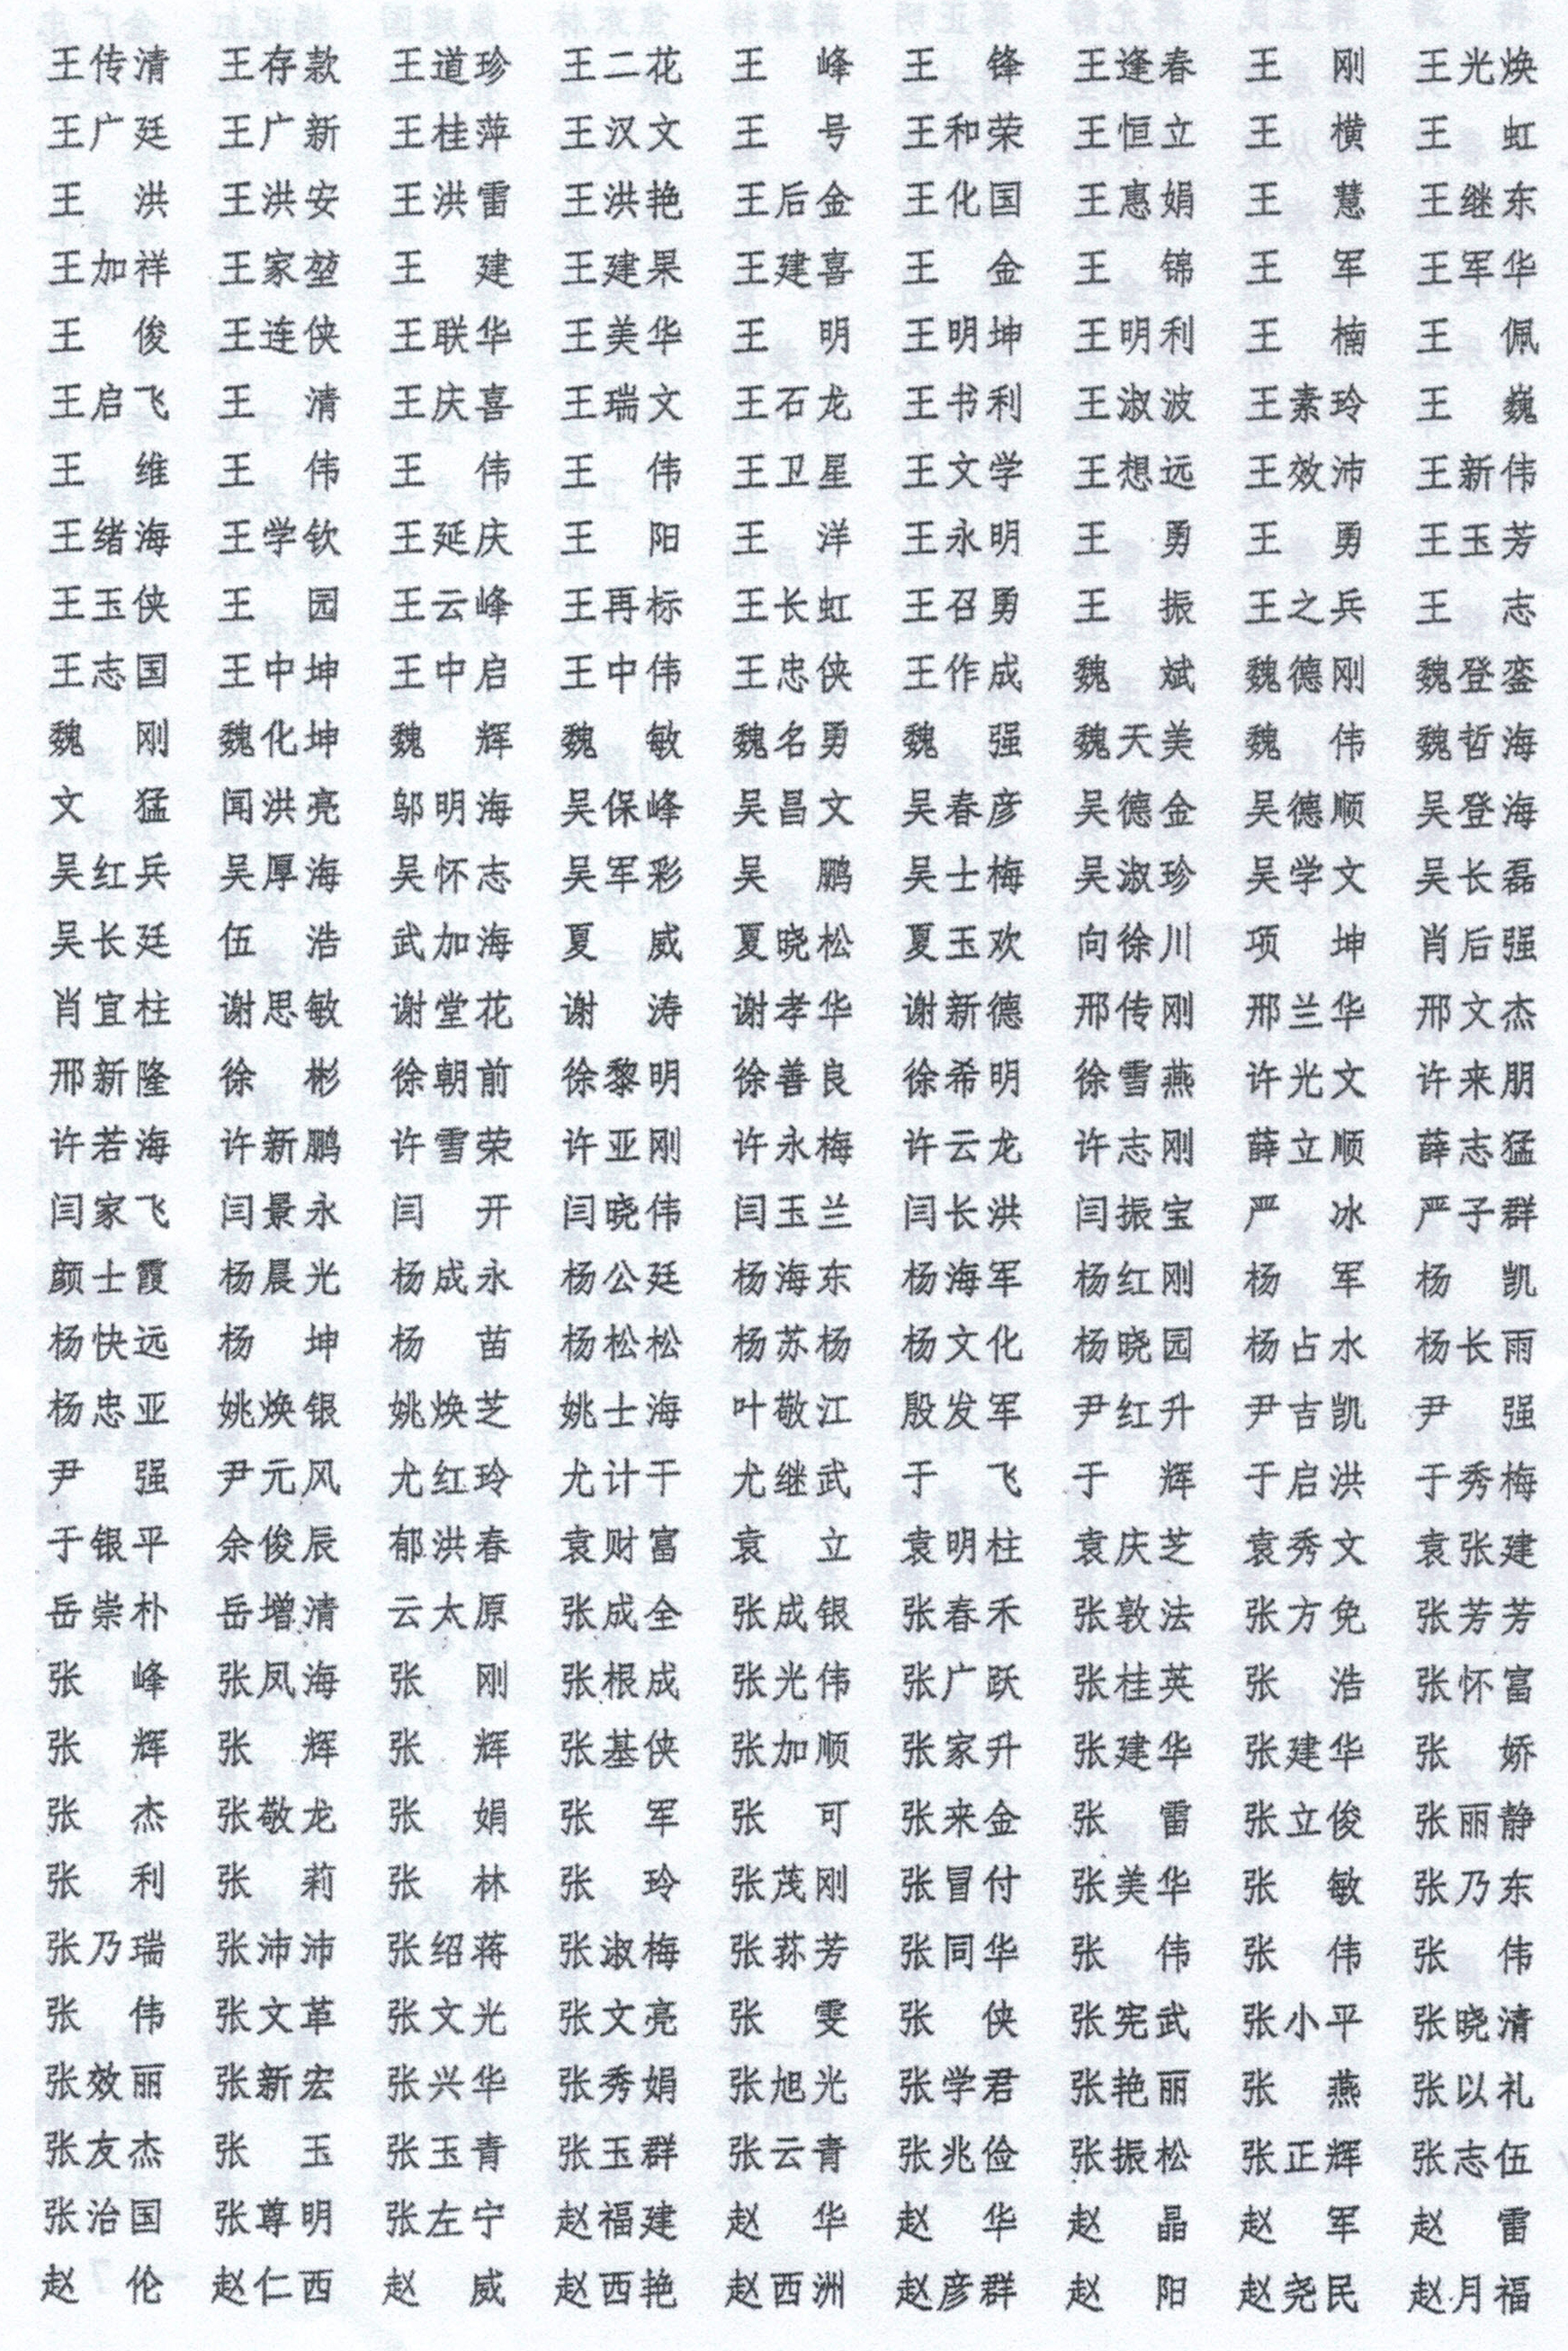 王传清 王存款 王道珍 王二花 王　峰 王　锋 王逢春 王　刚 王光焕
王广廷 王广新 王桂萍 王汉文 王　号 王和荣 王恒立 王　横 王　虹
王　洪 王洪安 王洪雷 王洪艳 王后金 王化国 王惠娟 王　慧 王继东
王加祥 王家堃 王　建 王建果 王建喜 王　金 王　锦 王　军 王军华
王　俊 王连侠 王联华 王美华 王　明 王明坤 王明利 王　楠 王　佩
王启飞 王　清 王庆喜 王瑞文 王石龙 王书利 王淑波 王素玲 王　巍
王　维 王　伟 王　伟 王　伟 王卫星 王文学 王想远 王效沛 王新伟
王绪海 王学钦 王延庆 王　阳 王　洋 王永明 王　勇 王　勇 王玉芳
王玉侠 王　园 王云峰 王再标 王长虹 王召勇 王　振 王之兵 王　志
王志国 王中坤 王中启 王中伟 王忠侠 王作成 魏　斌 魏德刚 魏登銮
魏　刚 魏化坤 魏　辉 魏　敏 魏名勇 魏　强 魏天美 魏　伟 魏哲海
文　猛 闻洪亮 邬明海 吴保峰 吴昌文 吴春彦 吴德金 吴德顺 吴登海
吴红兵 吴厚海 吴怀志 吴军彩 吴　鹏 吴士梅 吴淑珍 吴学文 吴长磊
吴长廷 伍　浩 武加海 夏　威 夏晓松 夏玉欢 向徐川 项　坤 肖后强
肖宜柱 谢思敏 谢堂花 谢　涛 谢孝华 谢新德 邢传刚 邢兰华 邢文杰
邢新隆 徐　彬 徐朝前 徐黎明 徐善良 徐希明 徐雪燕 许光文 许来朋
许若海 许新鹏 许雪荣 许亚刚 许永梅 许云龙 许志刚 薛立顺 薛志猛
闫家飞 闫景永 闫　开 闫晓伟 闫玉兰 闫长洪 闫振宝 严　冰 严子群
颜士霞 杨晨光 杨成永 杨公廷 杨海东 杨海军 杨红刚 杨　军 杨　凯
杨快远 杨　坤 杨　苗 杨松松 杨苏杨 杨文化 杨晓园 杨占水 杨长雨
杨忠亚 姚焕银 姚焕芝 姚士海 叶敬江 殷发军 尹红升 尹吉凯 尹　强
尹　强 尹元风 尤红玲 尤计干 尤继武 于　飞 于　辉 于启洪 于秀梅
于银平 余俊辰 郁洪春 袁财富 袁　立 袁明柱 袁庆芝 袁秀文 袁张建
岳崇朴 岳增清 云太原 张成全 张成银 张春禾 张敦法 张方免 张芳芳
张　峰 张凤海 张　刚 张根成 张光伟 张广跃 张桂英 张　浩 张怀富
张　辉 张　辉 张　辉 张基侠 张加顺 张家升 张建华 张建华 张　娇
张　杰 张敬龙 张　娟 张　军 张　可 张来金 张　雷 张立俊 张丽静
张　利 张　莉 张　林 张　玲 张茂刚 张冒付 张美华 张　敏 张乃东
张乃瑞 张沛沛 张绍蒋 张淑梅 张荪芳 张同华 张　伟 张　伟 张　伟
张　伟 张文革 张文光 张文亮 张　雯 张　侠 张宪武 张小平 张晓清
张效丽 张新宏 张兴华 张秀娟 张旭光 张学君 张艳丽 张　燕 张以礼
张友杰 张　玉 张玉青 张玉群 张云青 张兆俭 张振松 张正辉 张志伍
张治国 张尊明 张左宁 赵福建 赵　华 赵　华 赵　晶 赵　军 赵　雷
赵　伦 赵仁西 赵　威 赵西艳 赵西洲 赵彦群 赵　阳 赵尧民 赵月福